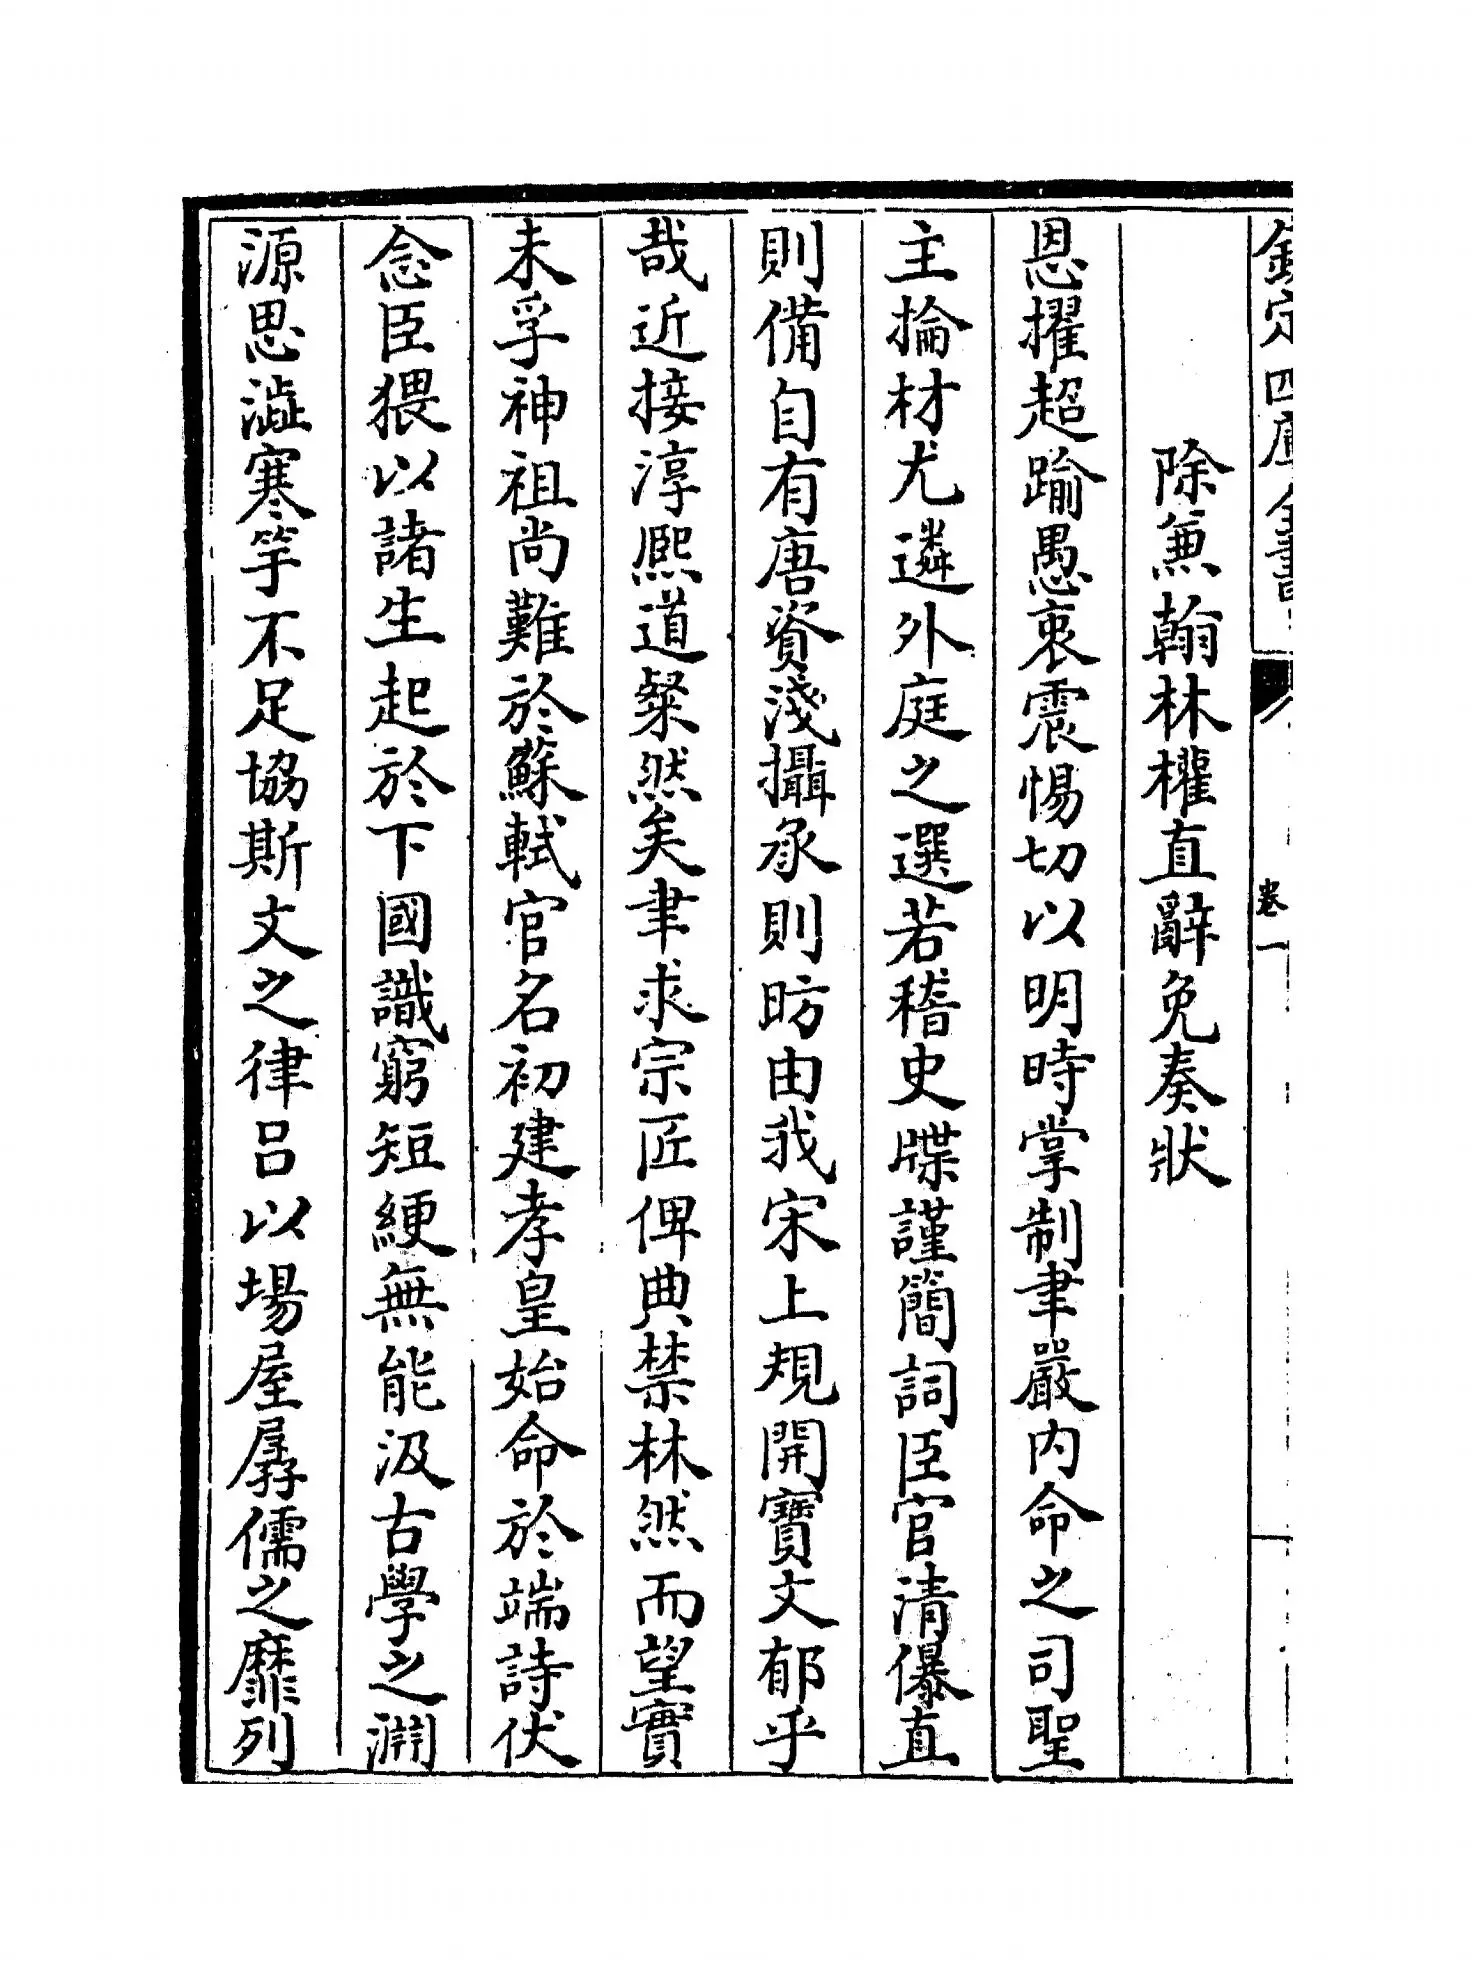 欽定四庫全書
卷一
除兼翰林權直辭免奏狀
恩擢超踰愚衷震惕切以明時掌制聿嚴内命之司聖
主掄材尤遴外庭之選若稽史牒謹簡詞臣官清儤直
則備自有唐資淺攝承則昉由我宋上規開寶文郁乎
哉近接淳熙道粲然矣聿求宗匠俾典禁林然而望實
未孚神祖尚難於蘇軾官名初建孝皇始命於端詩伏
念臣猥以諸生起於下國識窮短綆無能汲古學之淵
源思澁寒竽不足協斯文之律吕以場屋孱儒之靡列